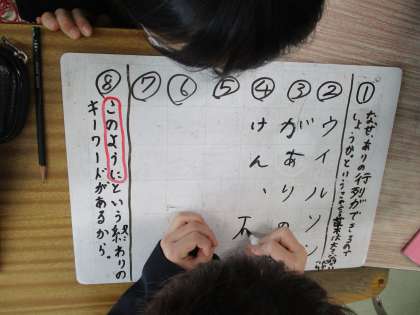 ①
なぜありの行列ができるので
しょうか。という
②
ウイルソン
③
がありの
④
けん、
⑤
⑥
⑦
⑧
このようにという終わりの
キーワードがあるから。